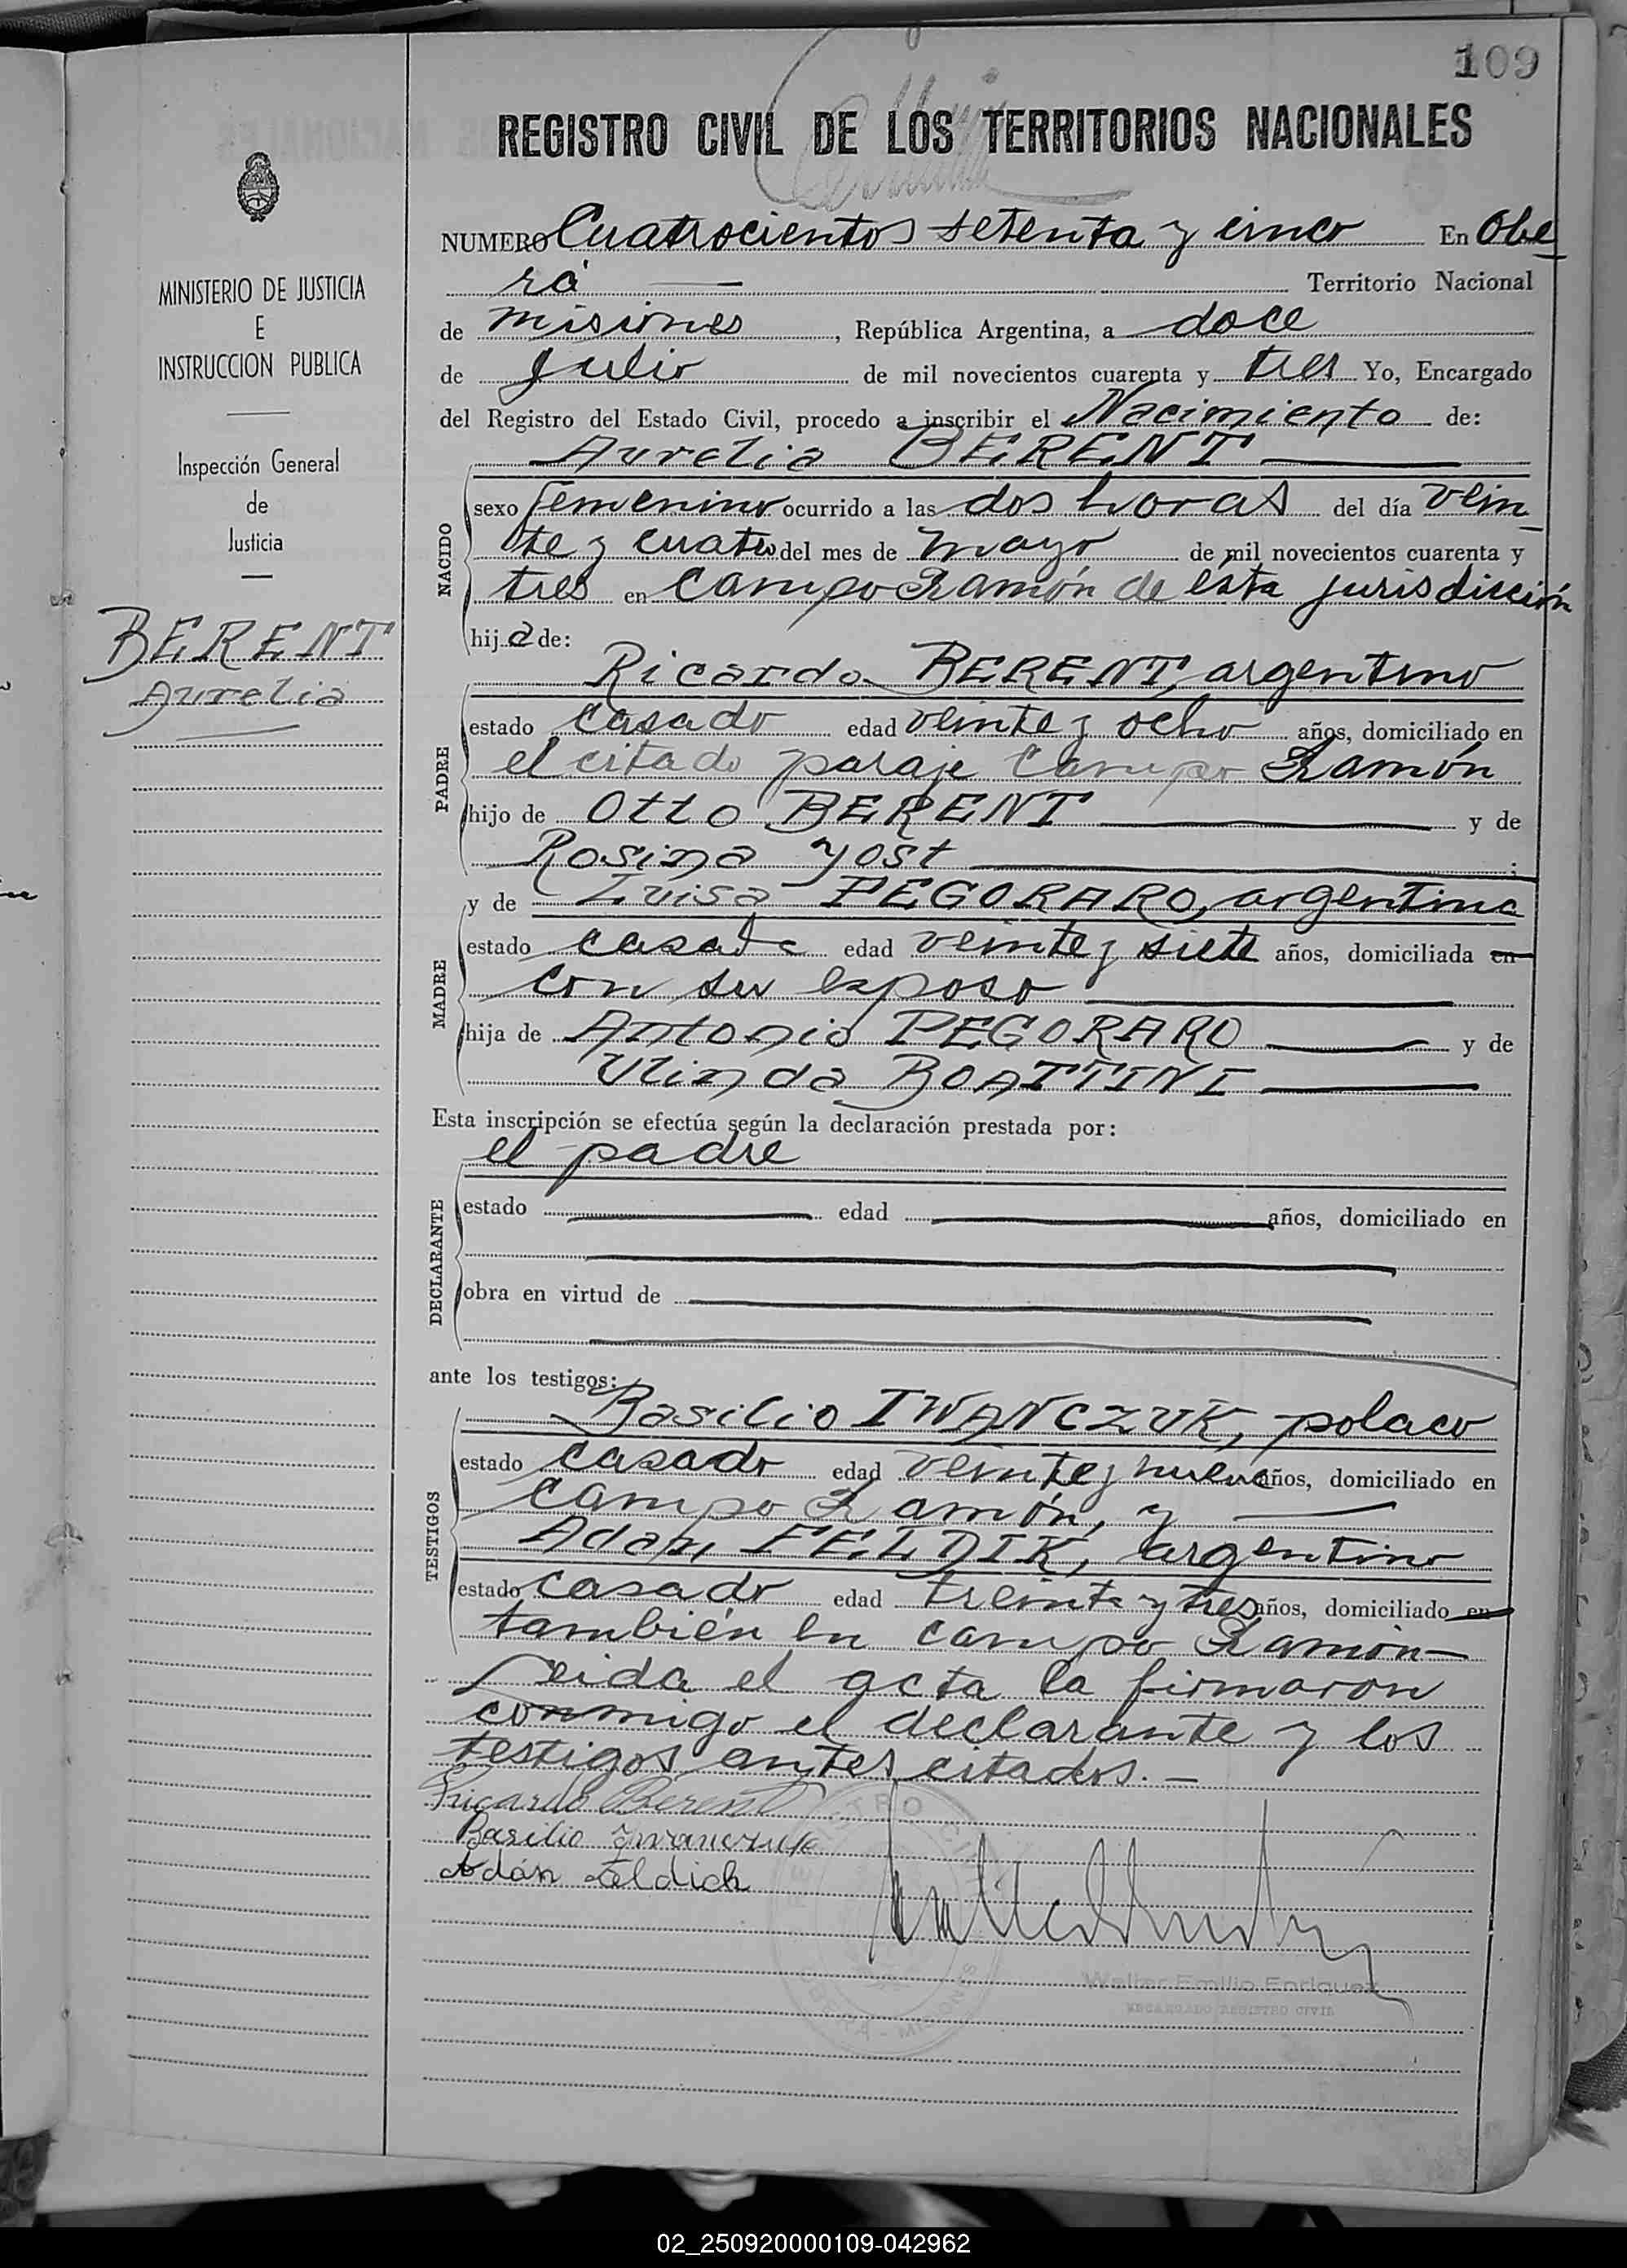 109
REGISTRO CIVIL DE LOS TERRITORIOS NACIONALES
MINISTERIO DE JUSTICIA
E
INSTRUCCION PUBLICA
Inspección General
de
Justicia
BERENT
Aurelia
NUMERO Cuatrocientos setenta y cinco En Obe
rá Territorio Nacional
de Misiones, República Argentina, a doce
de Julio de mil novecientos cuarenta y tres Yo, Encargado
del Registro del Estado Civil, procedo a inscribir el Nacimiento de:
Aurelia BERENT
NACIDO
sexo femenino ocurrido a las dos horas del día vein
te y cuatro del mes de mayo de mil novecientos cuarenta y
tres en Campo Ramón de ésta jurisdicción
hija de:
PADRE
Ricardo BERENT, argentino
estado casado edad veinte y ocho años, domiciliado en
el citado paraje Campo Ramón
hijo de Otto BERENT y de
Rosina Yost ;
MADRE
y de Luisa PEGORARO, argentina
estado casada edad veinte y siete años, domiciliada en
con su esposo
hija de Antonio PEGORARO y de
Ulinda BOATTINI
Esta inscripción se efectúa según la declaración prestada por:
el padre
DECLARANTE
estado edad años, domiciliado en
obra en virtud de
ante los testigos:
TESTIGOS
Basilio IWANCZUK, polaco
estado casado edad veinte y nueve años, domiciliado en
Campo Ramón, y
Adan FELDIK, argentino
estado casado edad treinta y tres años, domiciliado en
también en Campo Ramón
Leida el acta la firmaron
conmigo el declarante y los
testigos antes citados.
Ricardo Berent
Basilio Iwanczuk
Adán Feldich
Walter Emilio Enriquez
ENCARGADO REGISTRO CIVIL
02_250920000109-042962